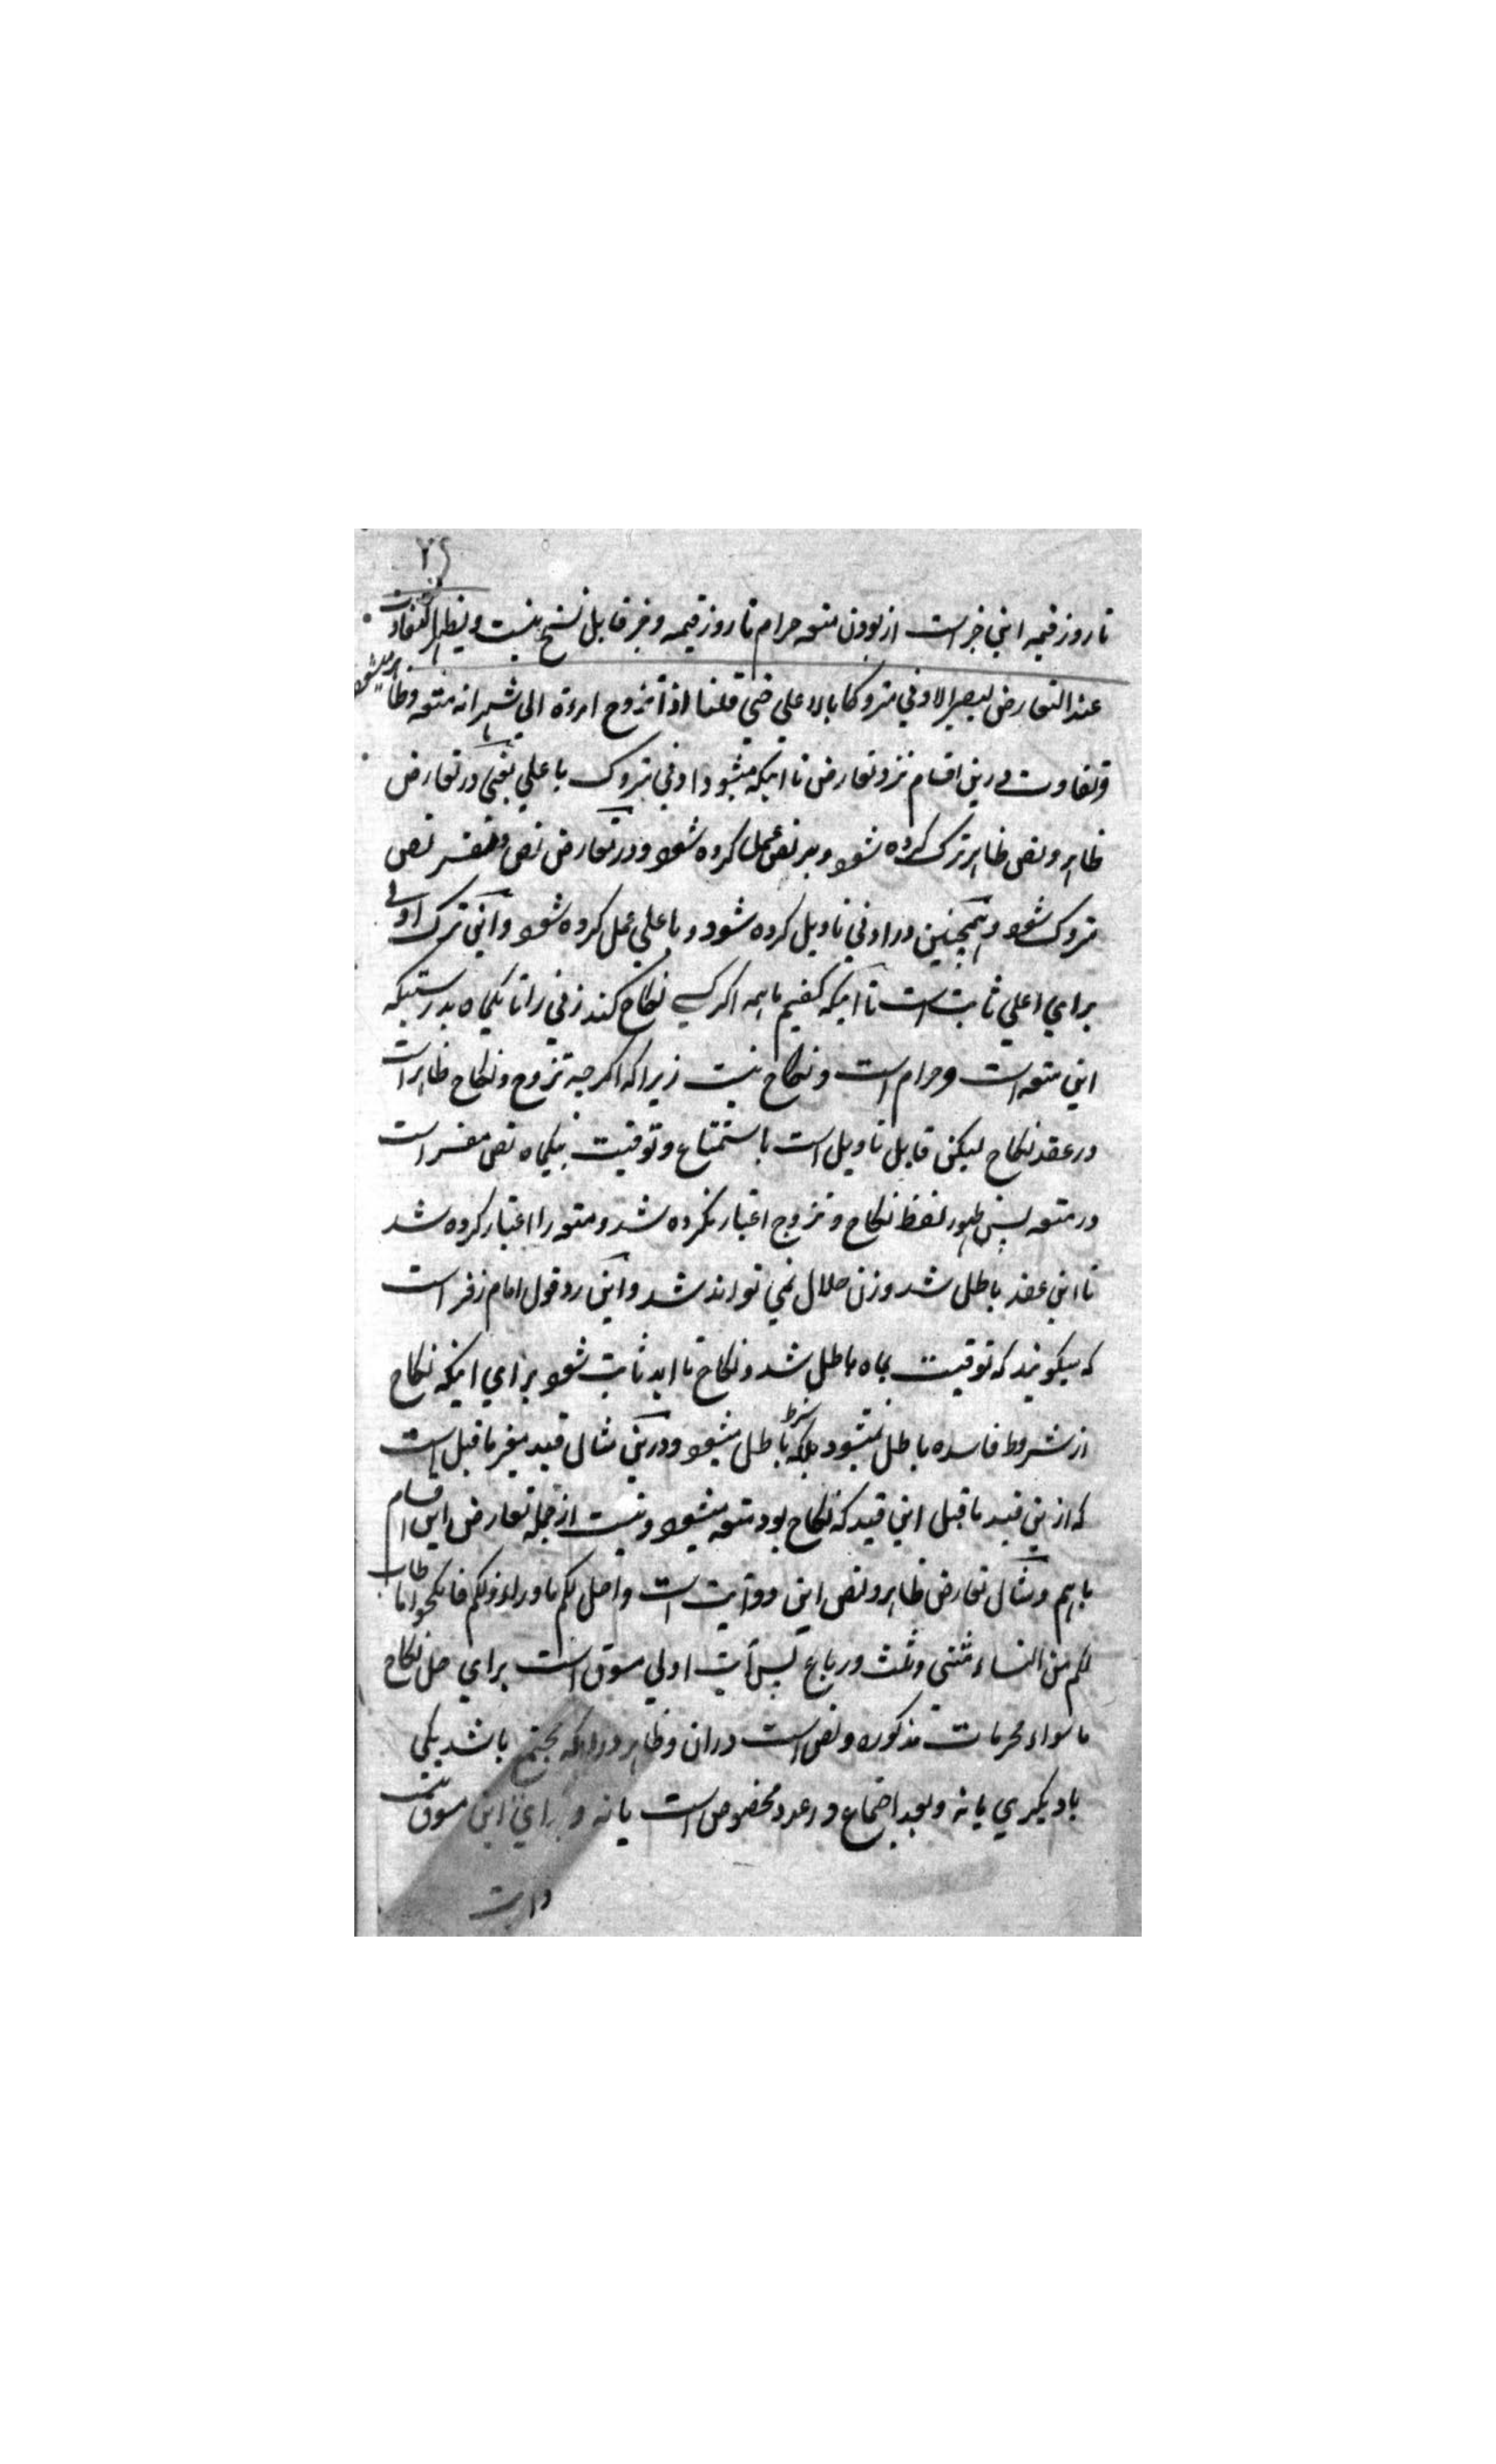 ٢٤
تا روز قیمه این خبر است از بودن متعه حرام تا روز قیمه و خبر قابل نسخ نیست و یظهر التفاوت
عند التعارض لیصیر الادنی متروکا بالاعلی حتی قلنا اذا تزوج امرءة الی شهر انه متعه وظاهر میشود
وتفاوت درین اقسام نزد تعارض تا اینکه میشود ادنی متروک باعلی یعنی در تعارض
ظاهر ونص ظاهر ترک کرده شود وبر نص عمل کرده شود ودر تعارض نص ومفسر نص
متروک شود وهمچنین در ادنی تاویل کرده شود وباعلی عمل کرده شود واین ترک ادنی
برای اعلی ثابت است تا اینکه گفتیم ما همه اگر کسی نکاح کند زنی را تا یکماه بدرستیکه
این متعه است وحرام است ونکاح نیست زیرا که اگرچه تزوج ونکاح ظاهر است
در عقد نکاح لیکن قابل تاویل است باستمتاع وتوقیت بیکماه نص مفسر است
در متعه پس ظهور لفظ نکاح وتزوج اعتبار نکرده شد ومتعه را اعتبار کرده شد
تا این عقد باطل شد وزن حلال نمی تواند شد واین رد قول امام زفر است
که میگویند که توقیت بماه باطل شد ونکاح تا ابد ثابت شود برای اینکه نکاح
از شروط فاسده باطل نمیشود بلکه شرط باطل میشود ودرین مثال قید مغیر ما قبل است
که ازین قید ما قبل این قید که نکاح بود متعه میشود ونیست از جمله تعارض این اقسام
باهم ومثال تعارض ظاهر ونص این دو آیت است واحل لکم ما وراء ذلکم فانکحوا ما طاب
لکم من النساء مثنی وثلث ورباع پس آیت اولی مسوق است برای حل نکاح
ما سواء محرمات مذکوره ونص است دران وظاهر در اینکه مجتمع باشد یکی
با دیگری یا نه وبعد اجتماع در عدد مخصوص است یا نه وبرای این مسوق نیست